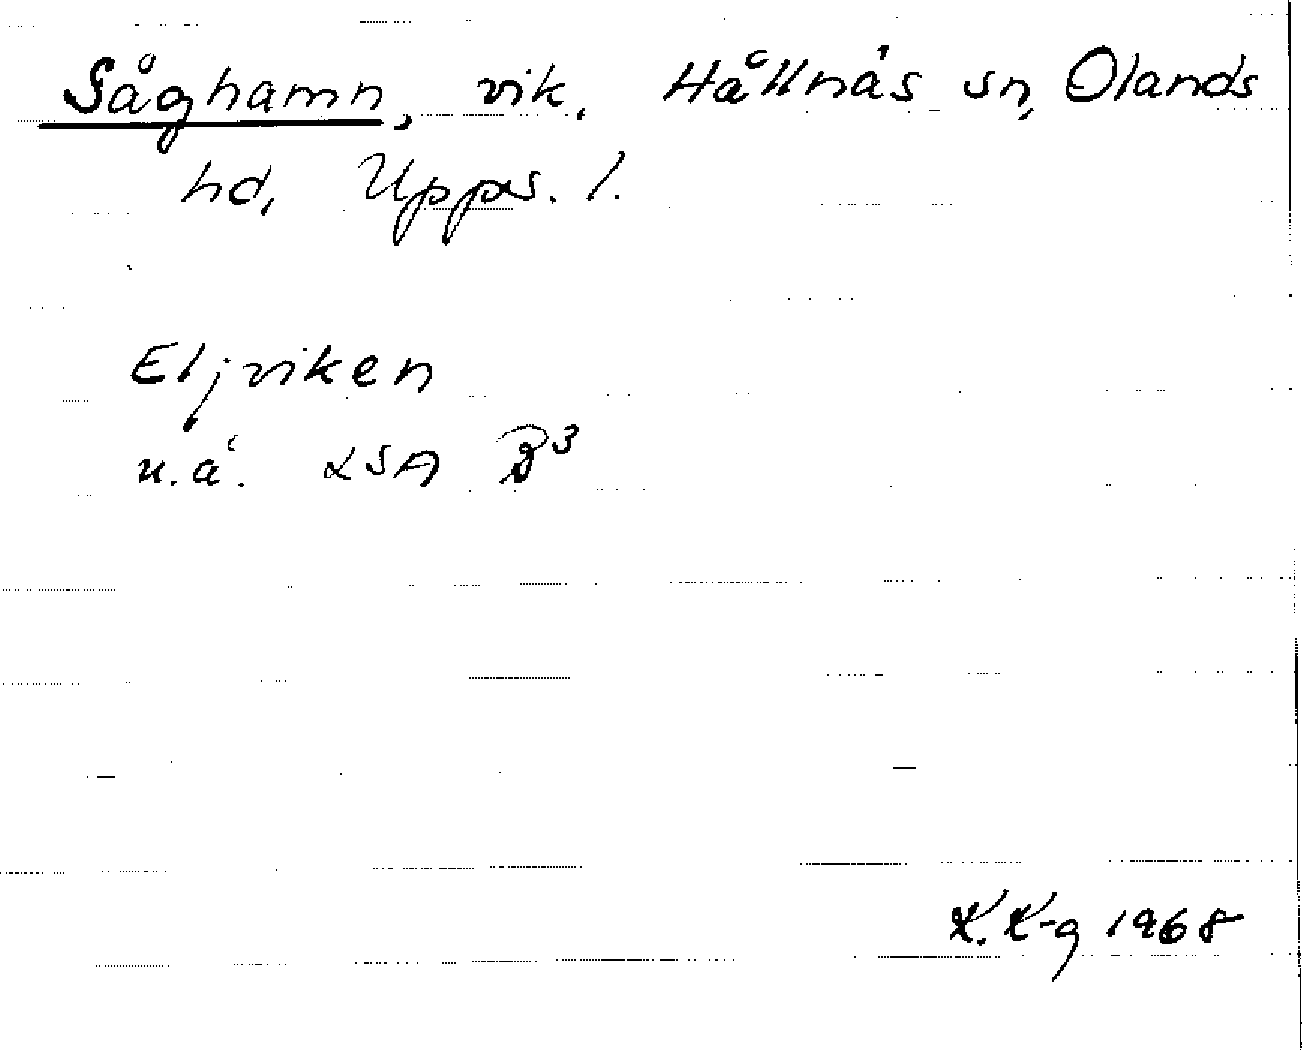 Såghamn, vik, Hållnäs sn, Olands
hd, Upps. l.
Eljviken
u.å. LSA B³
K. K-g 1968